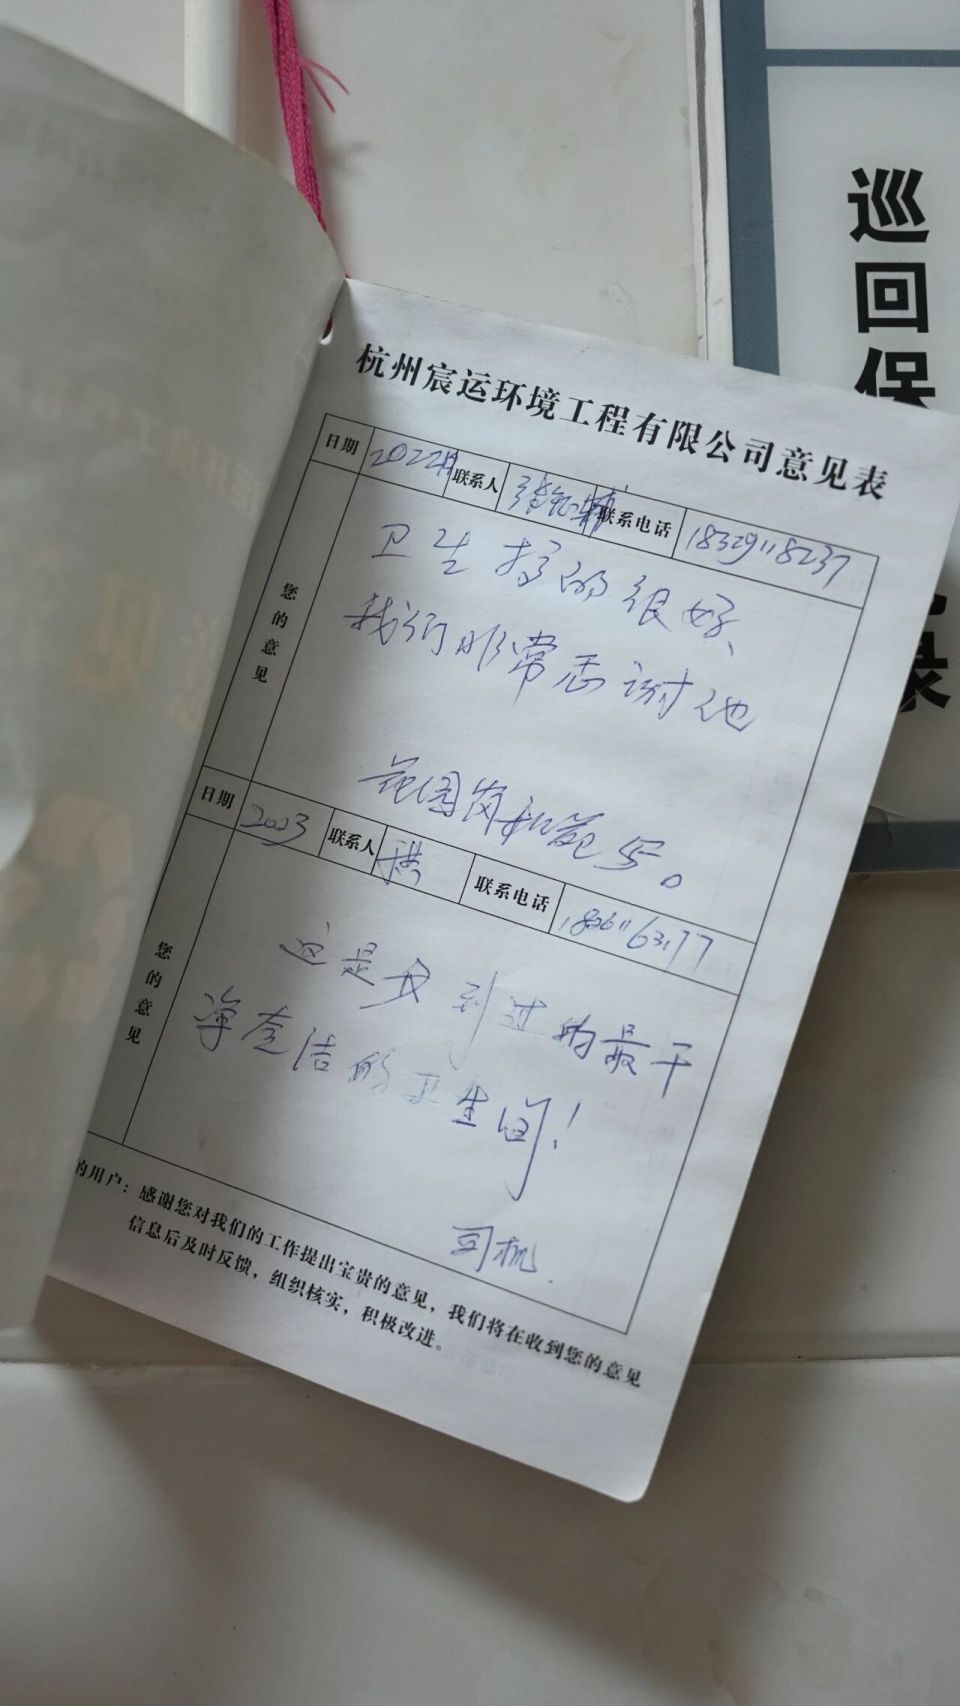 巡回保
录
杭州宸运环境工程有限公司意见表
日期 2022 联系人 联系电话 18329118237
您的意见
卫生搞的很好、
我们非常感谢他
花园岗
日期 2003 联系人 联系电话
您的意见
这是我到过的最干
净整洁的卫生间!
司机.
的用户:感谢您对我们的工作提出宝贵的意见,我们将在收到您的意见
信息后及时反馈,组织核实,积极改进。